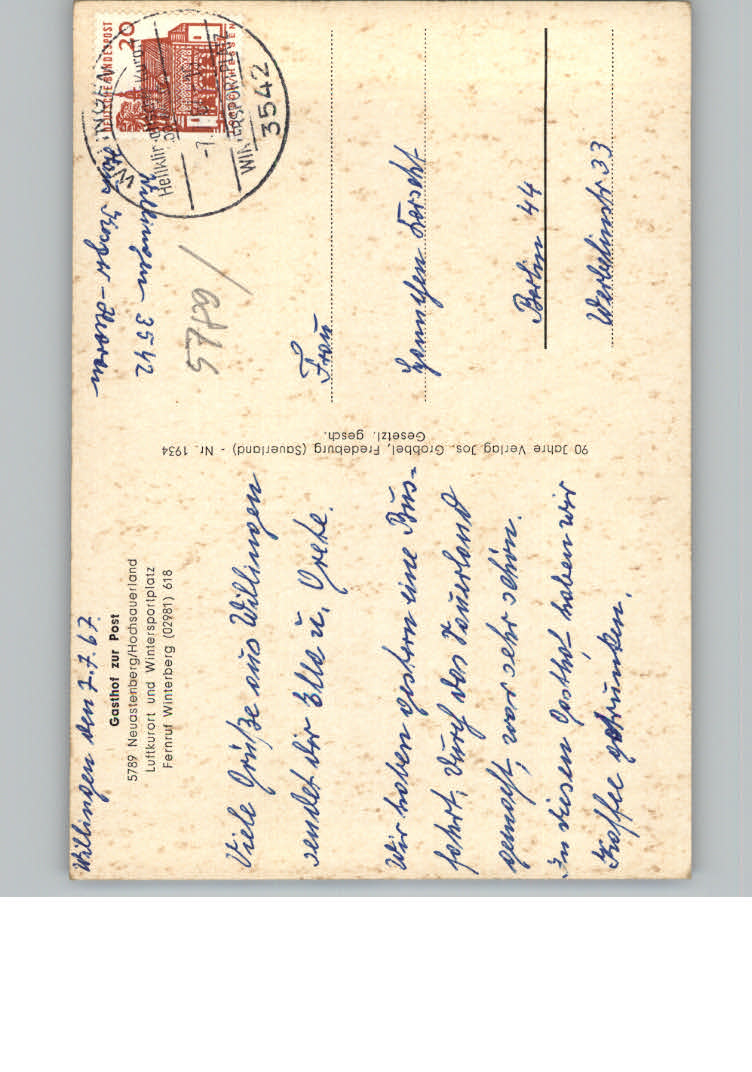 Willingen den 7.7.67.
Gasthof zur Post
5789 Neuastenberg/Hochsauerland
Luftkurort und Wintersportplatz
Fernruf Winterberg (02981) 618
Viele Grüße aus Willingen
sendet dir Ella u. Grete.
Wir haben gestern eine Bus-
fahrt, durch das Sauerland
gemacht, war sehr schön.
In diesen Gasthof haben wir
Kaffee getrunken.
90 Jahre Verlag Jos. Grobbel, Fredeburg (Sauerland) - Nr. 1934
Gesetzl. gesch.
DEUTSCHE BUNDESPOST
20
LORSCH/HESSEN
WILLINGEN
Heilklimatischer Kurort
WINTERSPORTPLATZ
3542
Haus
Willingen 3542
5789/
Frau
Berlin 44
33